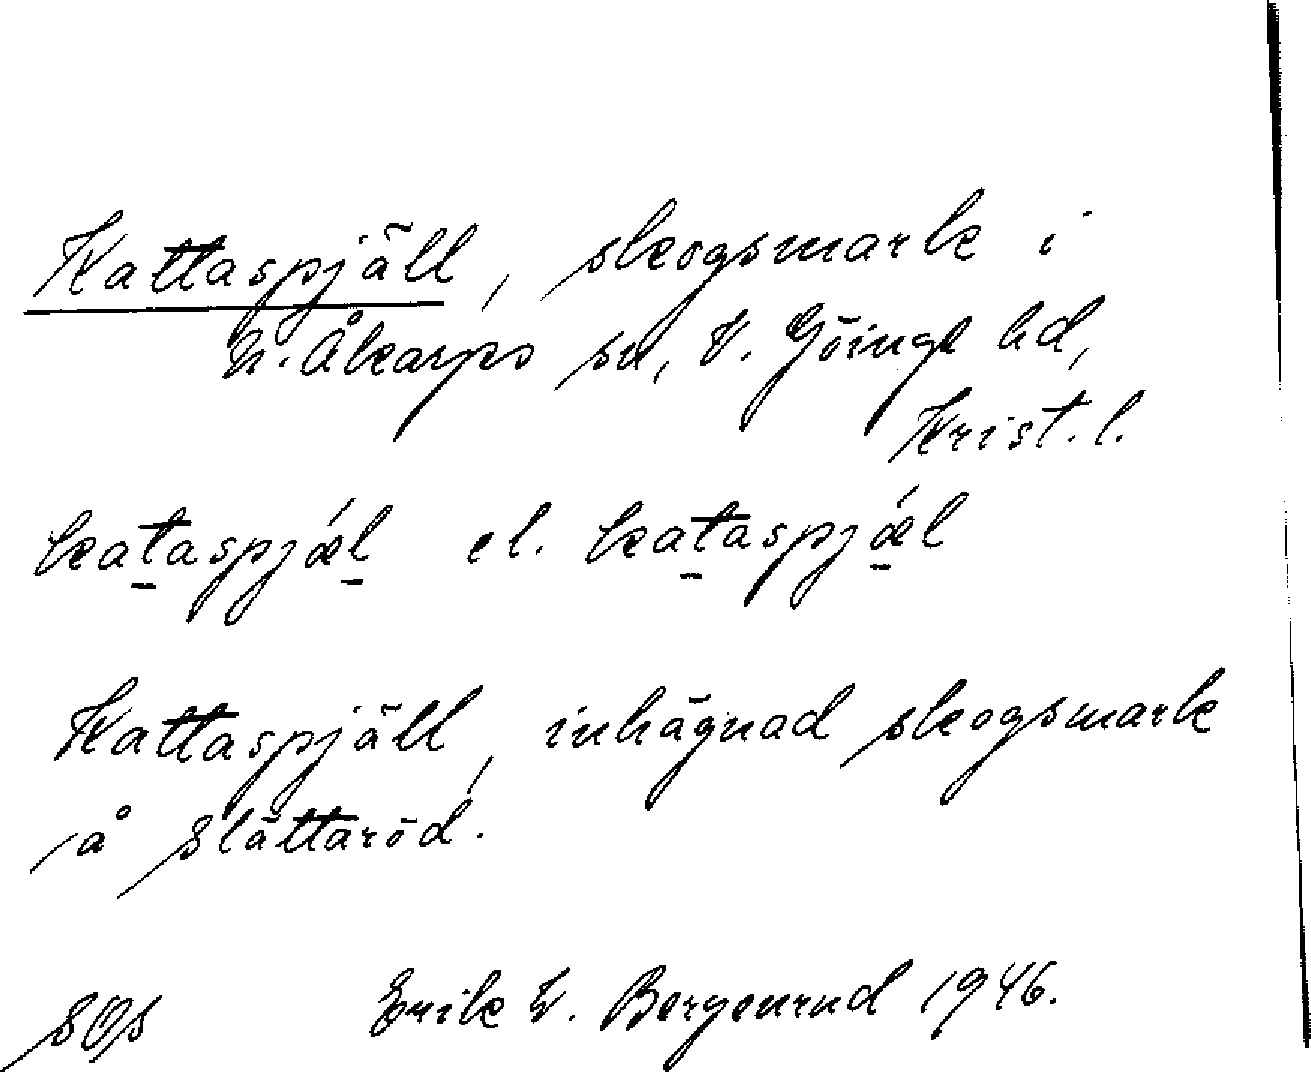 Kattaspjäll, skogsmark i
N. Åkarps sn, V. Göinge hd,
Krist. l.
kataspjǽl el. kataspjǽl
Kattaspjäll, inhägnad skogsmark
å Slättaröd.
SOS Erik W. Bergenrud 1946.